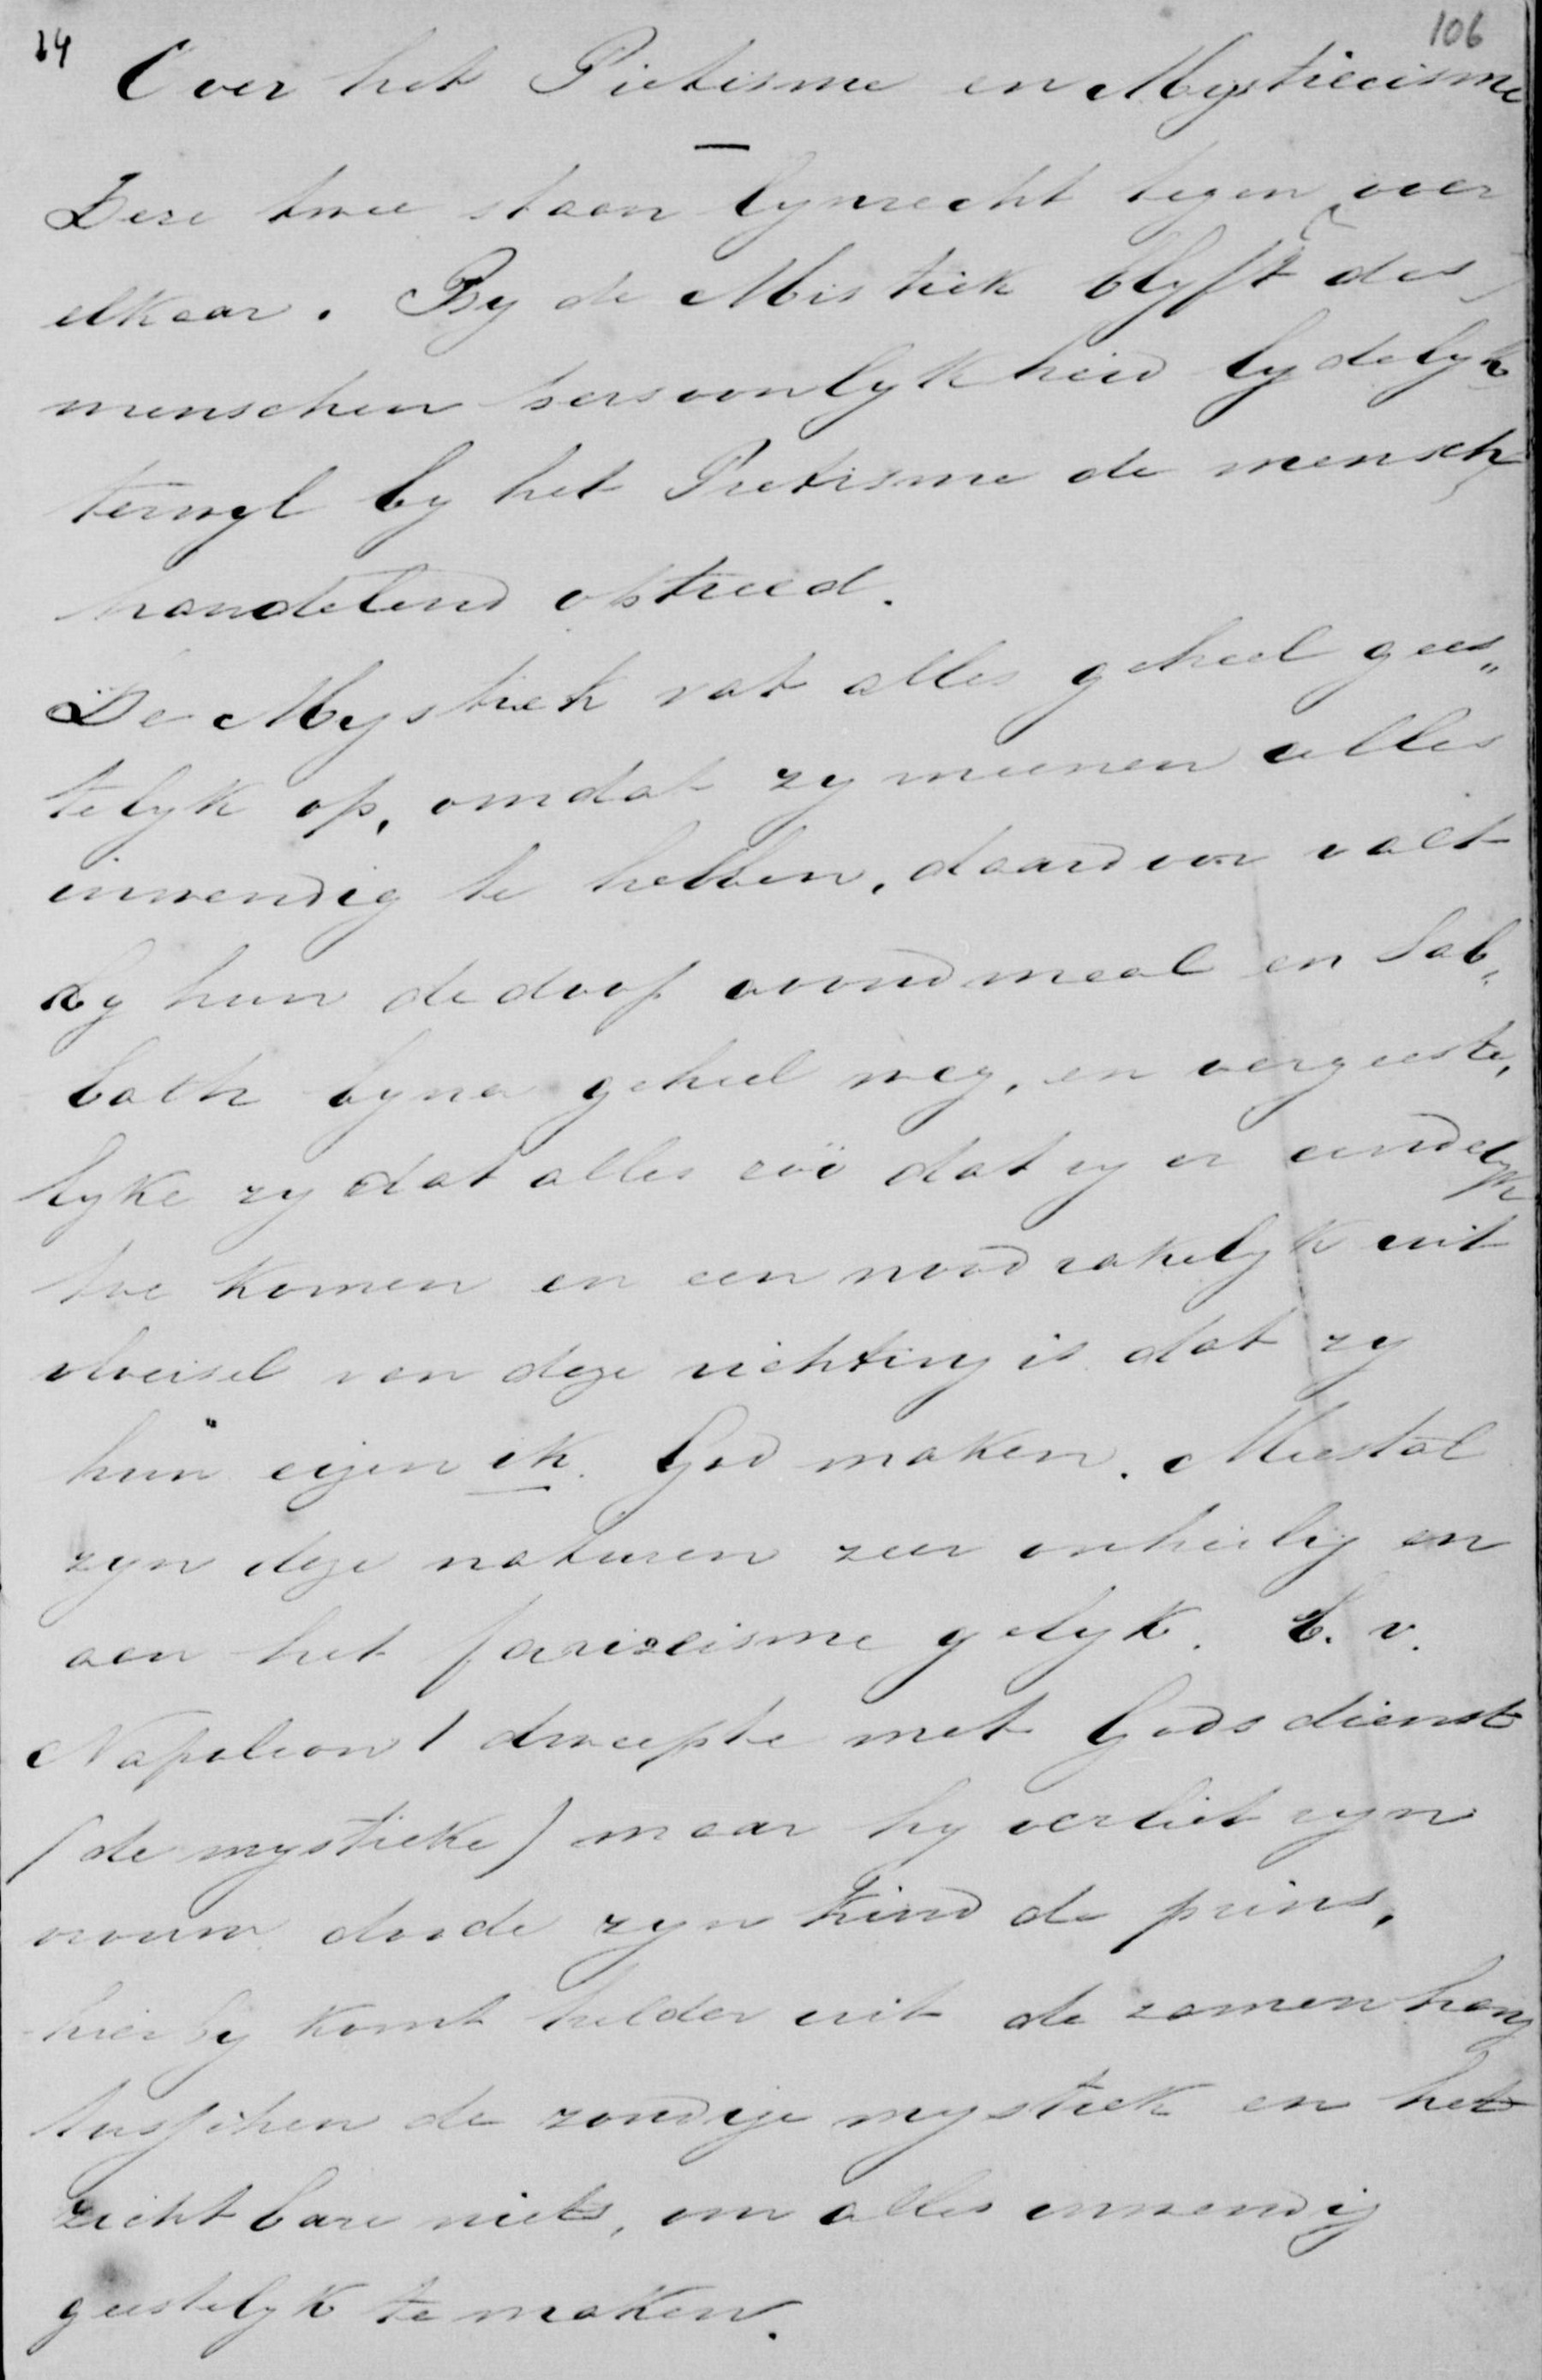 14 106
Over het Pietisme en Mysticisme
Deze twee staan lynrecht tegen over
elkaar. By de Mistiek blyft des
menschen persoonlykheid lydelyk
terwyl by het Pietisme de mensch
handelend optreed.
De Mystiek vat alles geheel gees„
telyk op, omdat zy meenen alles
inwendig te hebben, daardoor valt
by hun de doop avondmaal en Sab„
bath byna geheel weg, en vergeeste,
lyke zy dat alles zoo dat zy er eindelyk
toe komen en een noodzakelyk uit
vloeisel van deze richting is dat zy
hun eigen ik God maken. Meestal
zyn deze naturen zeer onheilig en
aan het farizeisme gelyk. b. v.
Napoleon I dweepte met Godsdienst
(de mystieke) maar hy verliet zyn
vrouw doode zyn kind de prins,
hierby komt helder uit de zamenhang
tusschen de zondige mystiek en het
zichtbare niets, om alles inwendig
geestelyk te maken.